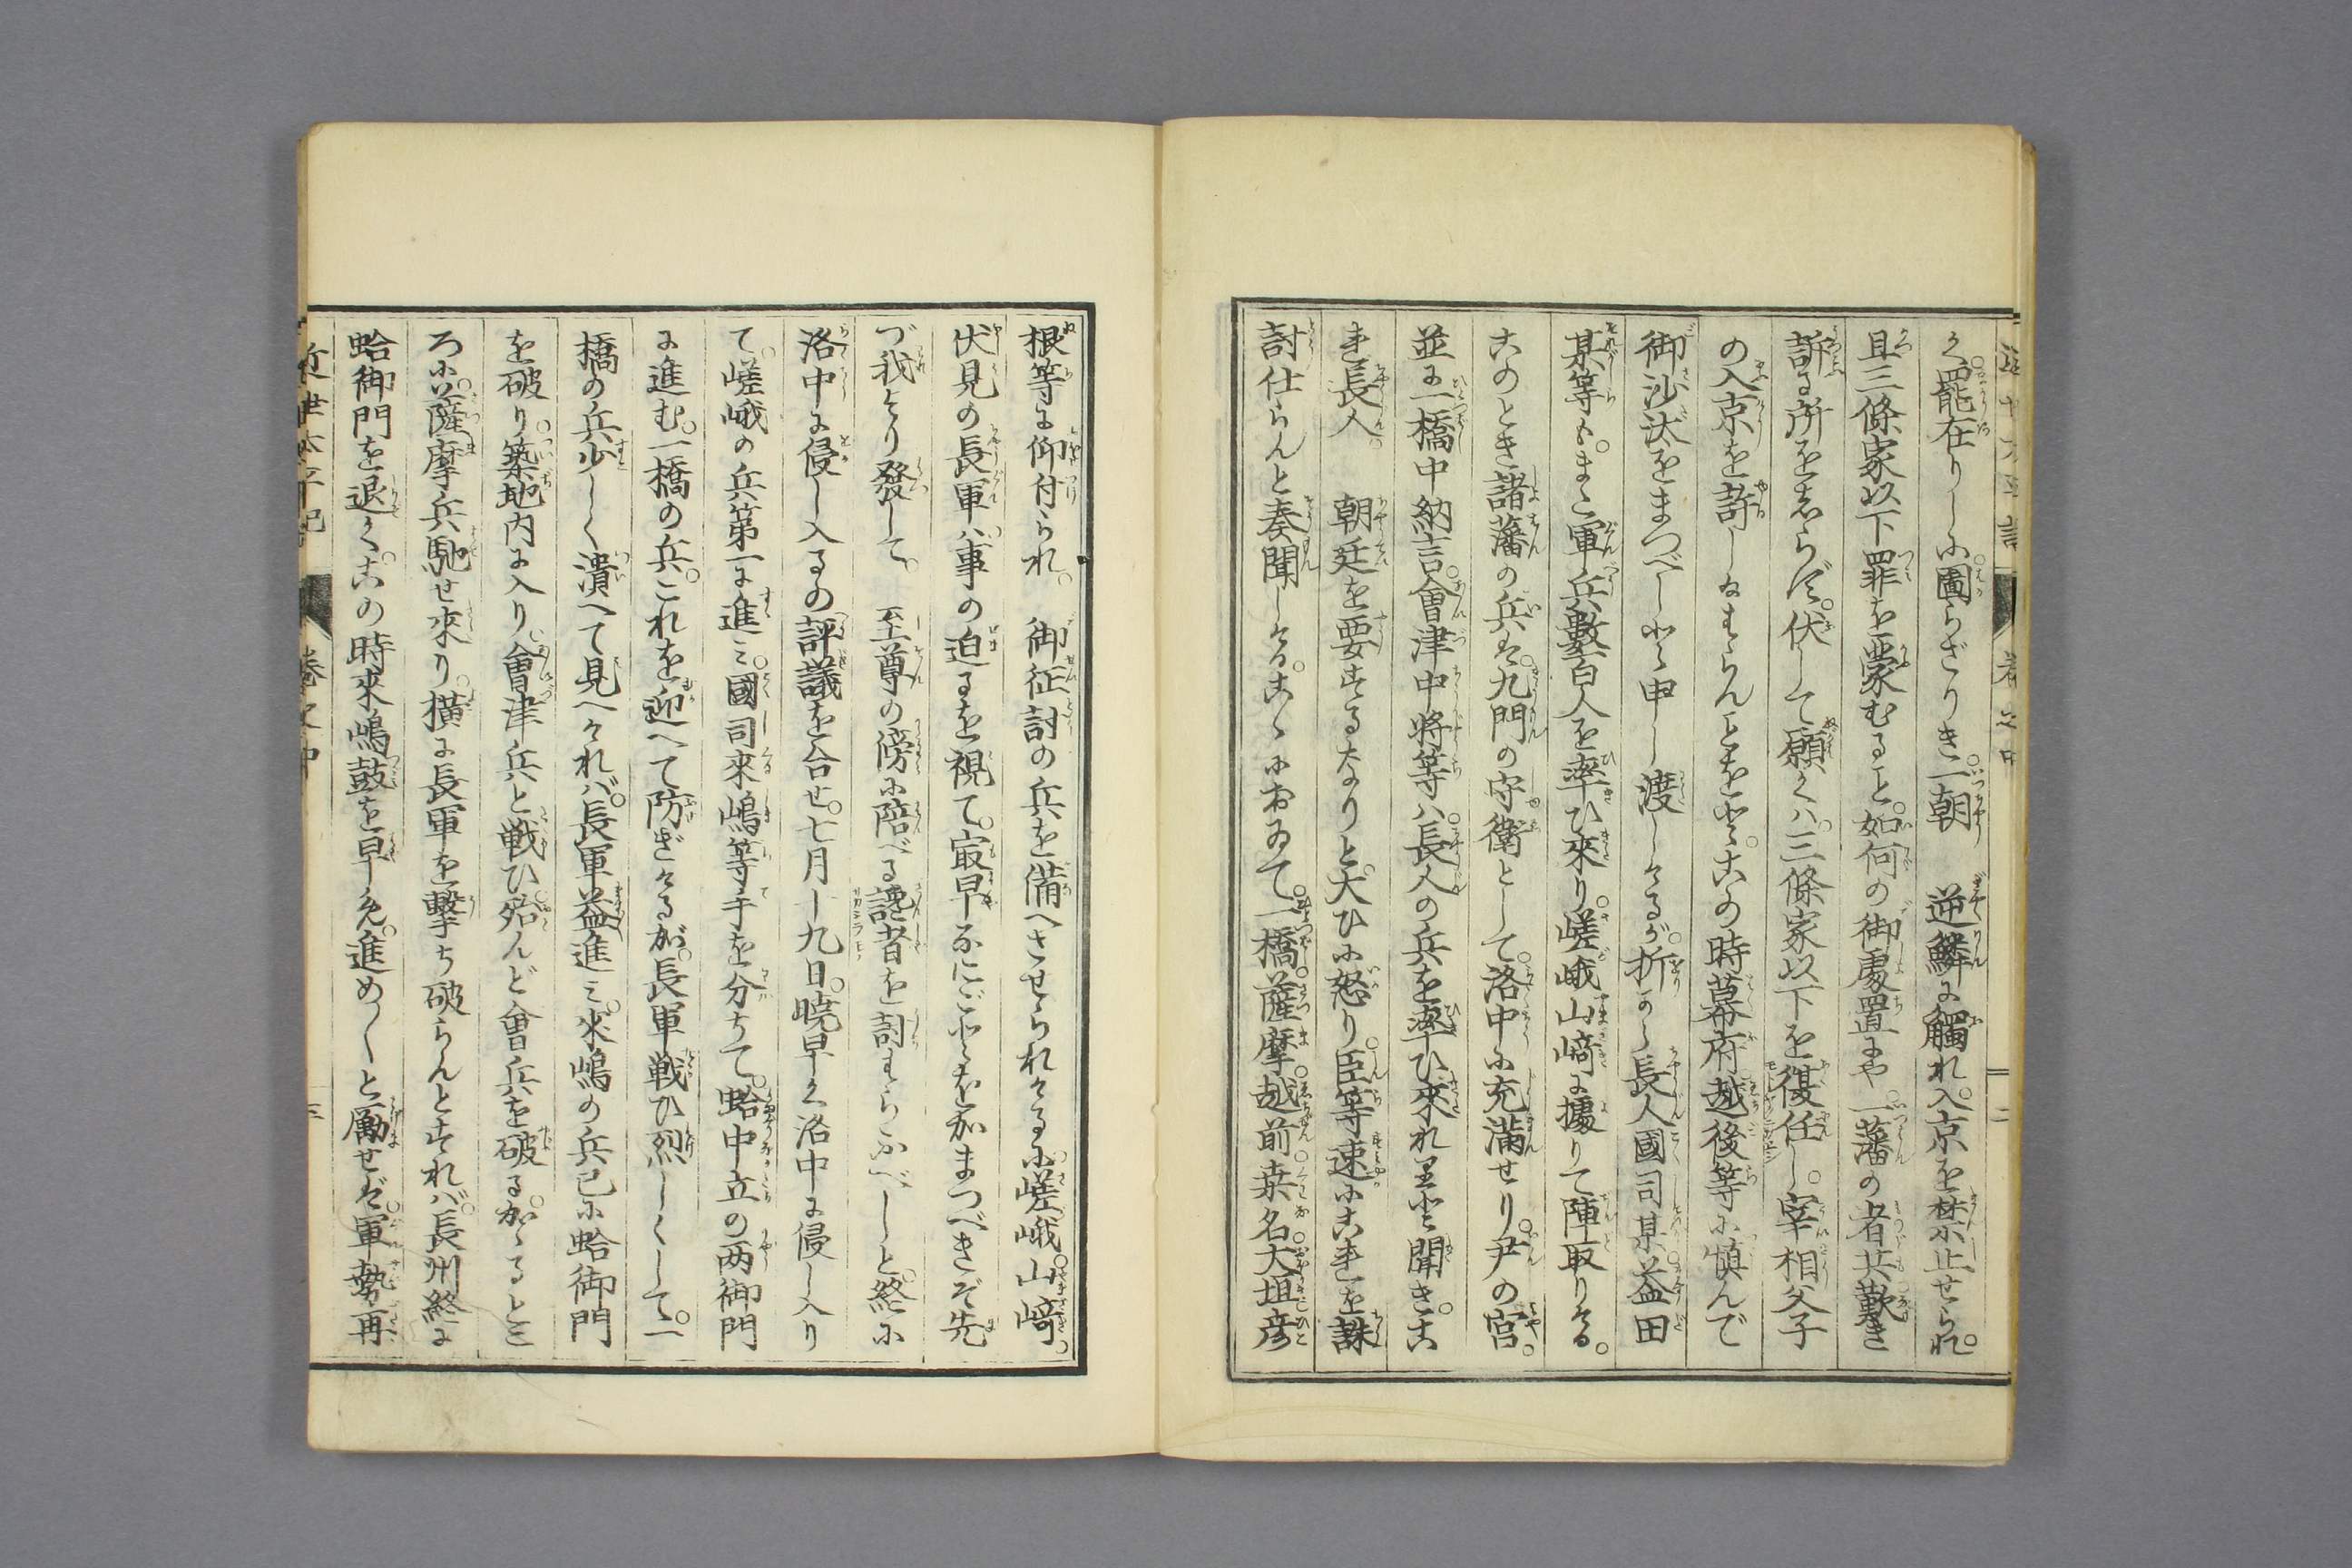 近世太平記 巻之中 二
く罷在りしに圖らざりき一朝 逆鱗に觸れ入京を禁止せられ
且三條家以下罪を蒙むること如何の御處置にや一藩の者共歎き
訴る所をしらず伏して願くハ三條家以下を復任し宰相父子
の入京を許し
御沙汰をまつべしと申し渡しけるが折から長人國司某益田
某等もまた軍兵數百人を率ひ來り嵯峨山﨑に據りて陣取りける
このとき諸藩の兵は九門の守衛として洛中に充滿せり尹の宮
並に一橋中納言會津中将等ハ長人の兵を率ひ來れりと聞きこ
れ長人 朝廷を要するなりと大ひに怒り臣等速にこれを誅
討仕らんと奏聞しけるこゝにおゐて一橋薩摩越前桒名大垣彦
根等に仰付られ 御征討の兵を備へさせられけるに嵯峨山﨑
伏見の長軍ハ事の迫るを視て寂早
づ我より發して 至尊の傍に陪べる讒者を討
洛中に侵し入るの評議を合せ七月十九日暁早く洛中に侵し入り
て嵯峨の兵第一に進ミ國司來嶋等手を分ちて蛤中立の両御門
に進む一橋の兵これを迎へて防ぎけるが長軍戦ひ烈しくして一
橋の兵少しく潰へて見へけれバ長軍益進ミ來嶋の兵已に蛤御門
を破り築地内に入り會津兵と戦ひ殆んど會兵を破るかゝると
ろに薩摩兵馳せ來り横に長軍を擊ち破らんとすれバ長州終に
蛤御門を退くこの時來嶋鼓を早め進め〱と励せば軍勢再
近世太平記 巻之中 三